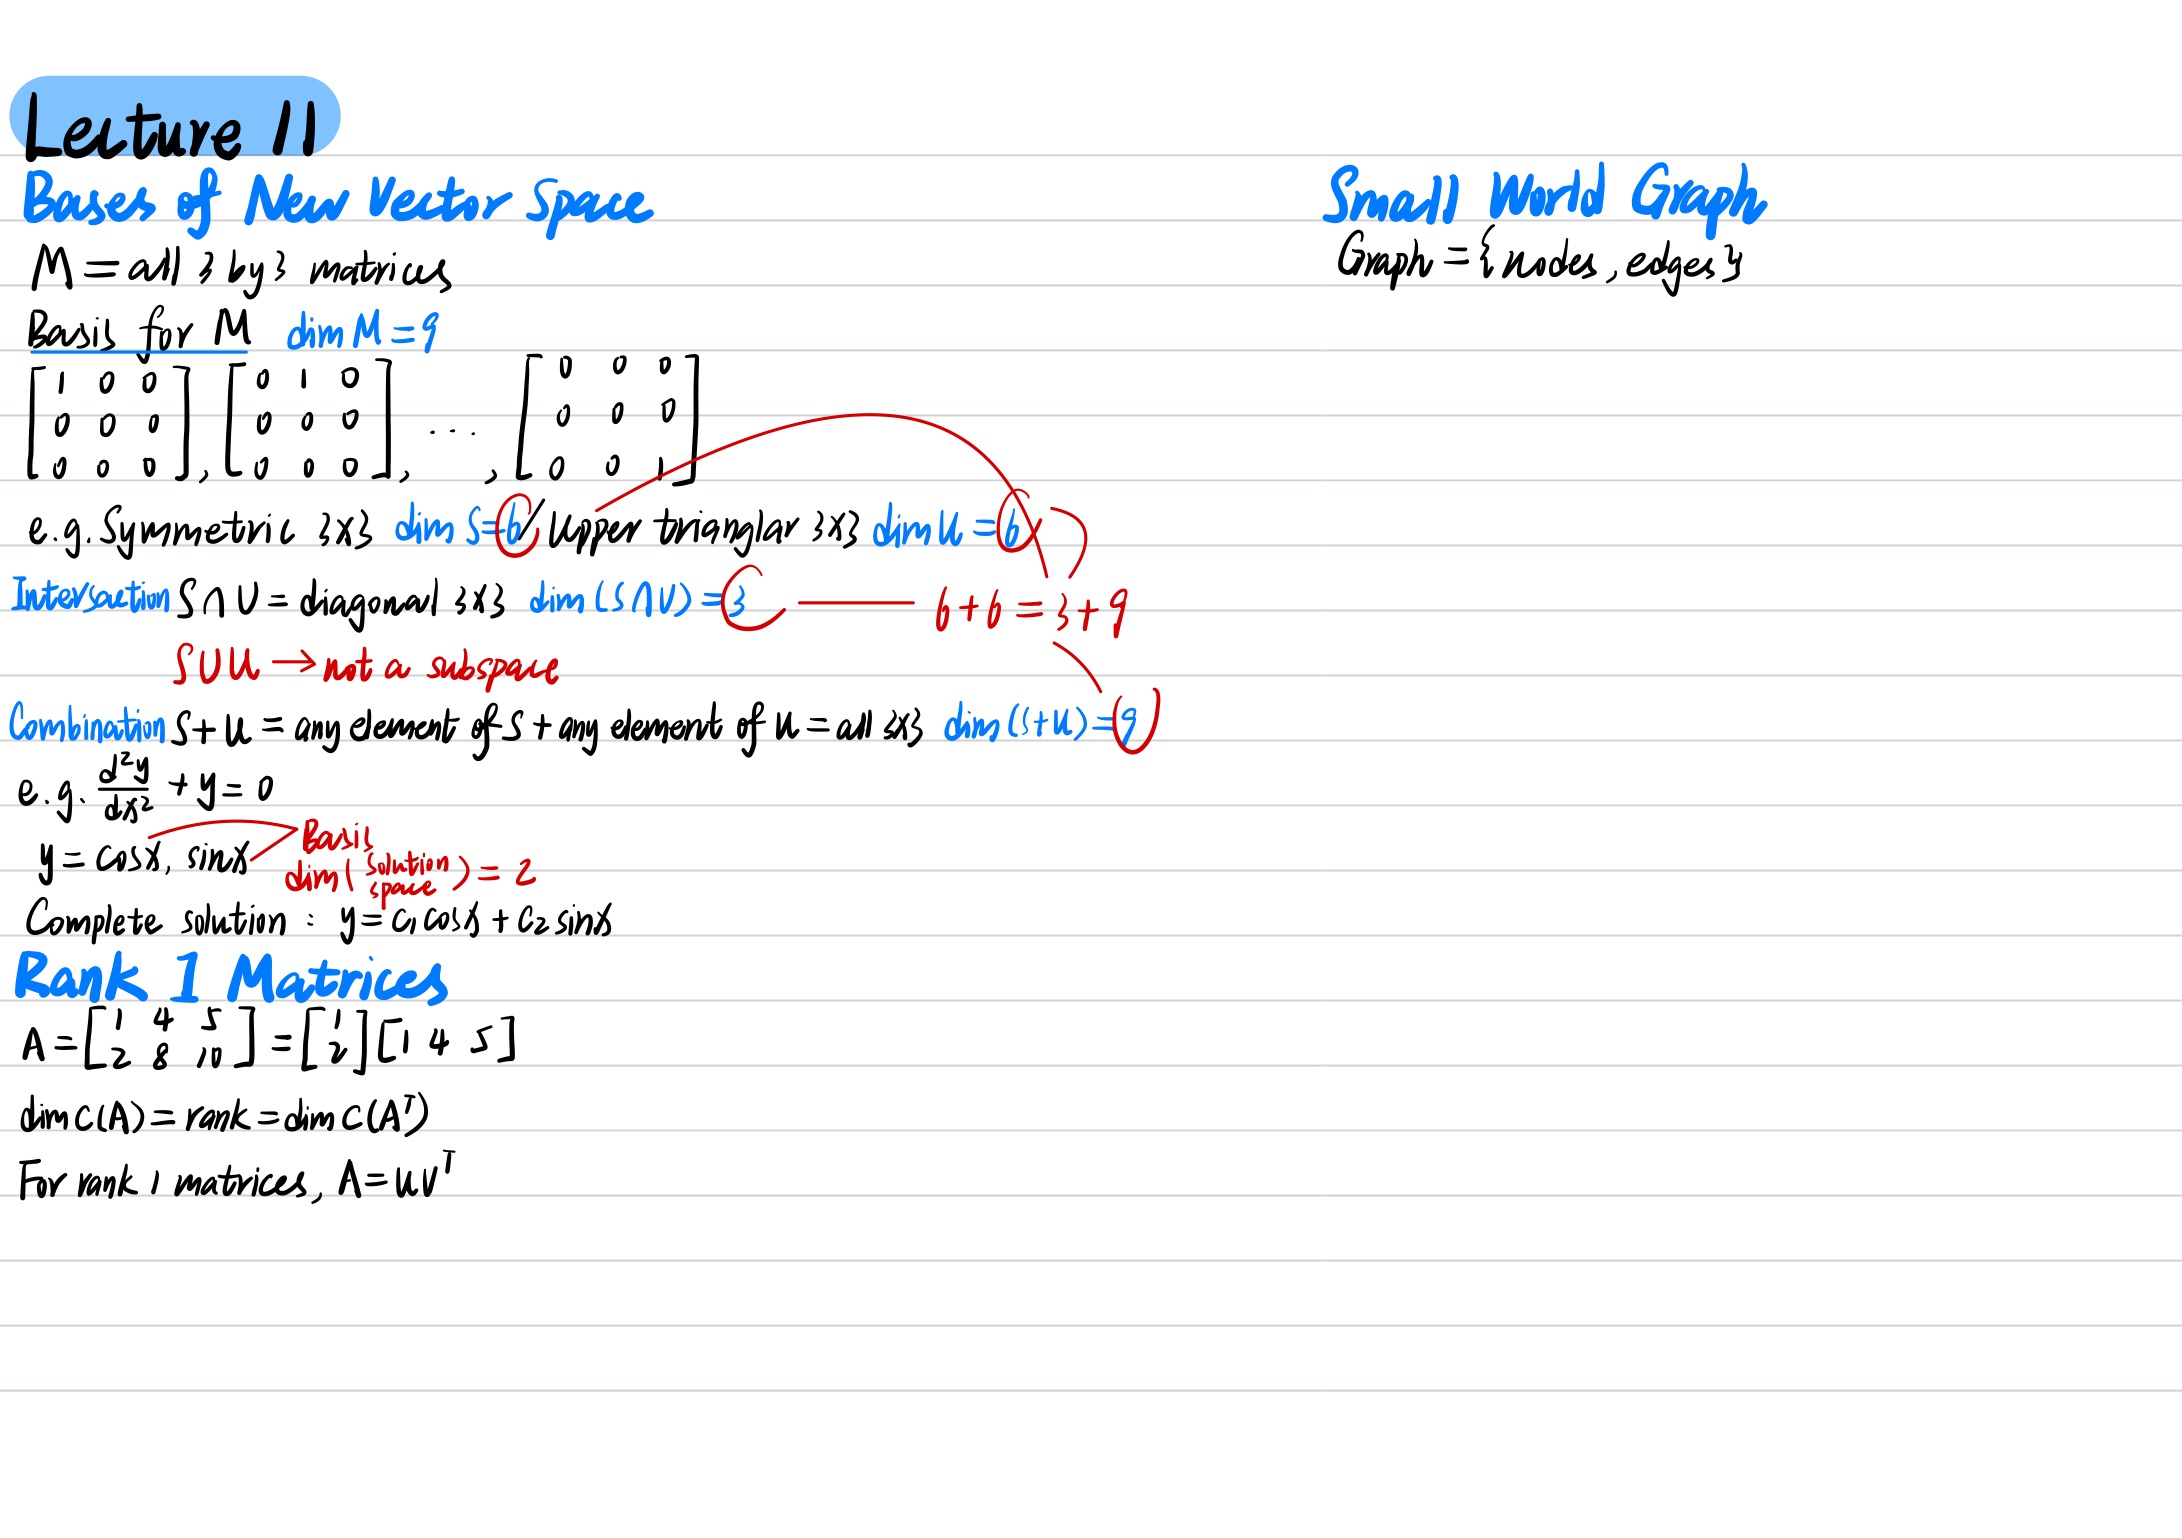 Lecture 11
Bases of New Vector Space
M = all 3 by 3 matrices
Basis for M dim M = 9
[1 0 0; 0 0 0; 0 0 0], [0 1 0; 0 0 0; 0 0 0], ... , [0 0 0; 0 0 0; 0 0 1]
e.g. Symmetric 3x3 dim S = 6 / Upper trianglar 3x3 dim U = 6
Intersaction S ∩ U = diagonal 3x3 dim (S ∩ U) = 3 6 + 6 = 3 + 9
S ∪ U → not a subspace
Combination S + U = any element of S + any element of U = all 3x3 dim (S + U) = 9
e.g. d²y/dx² + y = 0
y = cosx, sinx Basis
dim ( solution space ) = 2
Complete solution : y = c₁ cosx + c₂ sinx
Rank 1 Matrices
A = [1 4 5; 2 8 10] = [1; 2] [1 4 5]
dim C(A) = rank = dim C(Aᵀ)
For rank 1 matrices, A = uvᵀ
Small World Graph
Graph = {nodes, edges}